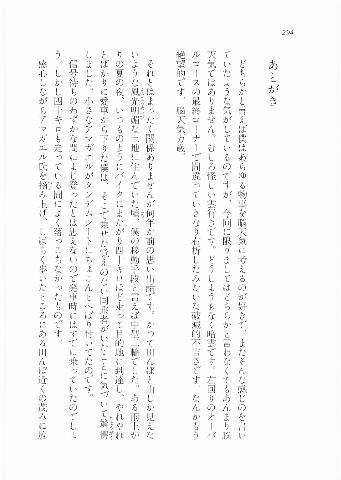 204
あとがき
どちらかと言えば僕はあらゆる物事を脳天気に考えるのが好きで、またそんな感じのを言い
ていたような気がしているのですが、今回に限りましてはどちらかと言わなくてもあんまり脳
天気ではありません。むしろ怪しい雲行きです。どうしようもなく暗雲です。左回りのオーバ
ルコースの最終コーナーで間違っていきなり右折したみたいな破滅的不吉さです。なんかもう
絶望的です。脳天気力が。
それとはまったく関係ありませんが何年か前の思い出話です。かつて田んぼと山しか見えな
いような風光明媚な土地に住んでいた頃、僕の移動手段と言えば中型二輪でした。ある雨上が
りの夏の夜、いつものようにバイクにまたがり四十キロほど走って目的地に到達し、やれやれ
とばかりに愛車から下りた僕は、そこで乗せた覚えのない同乗者がいたことに気づいて驚愕
しました。小さなアマガエルがタンデムシートにちょこんとへばり付いてたのです。
信号待ちのわずかな間によじ登ったとは思えないので発車時にはすでに乗っていたのでしょ
う。しかし四十キロも走っている間によく落っこちなかったものです。
感心しながらアマガエル氏を摘み上げ、しばらく歩いたところにある田んぼ近くの茂みに放